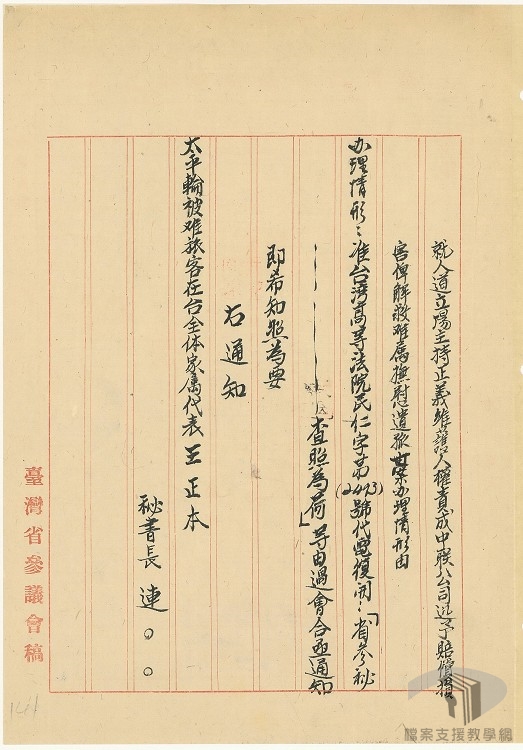 就人道立場主持正義維護人權責成中联公司迅予賠償損
害俾解救难属撫慰遺孤廿案办理情形由
办理情形：准台湾高等法院民仁字苐(2493)號代電復開：「省参祕
查照為荷」等由過會合亟通知
即希知照為要
右通知
太平輪被难旅客在台全体家属代表王正本
秘書長連○○
臺灣省參議會稿
檔案支援教學網